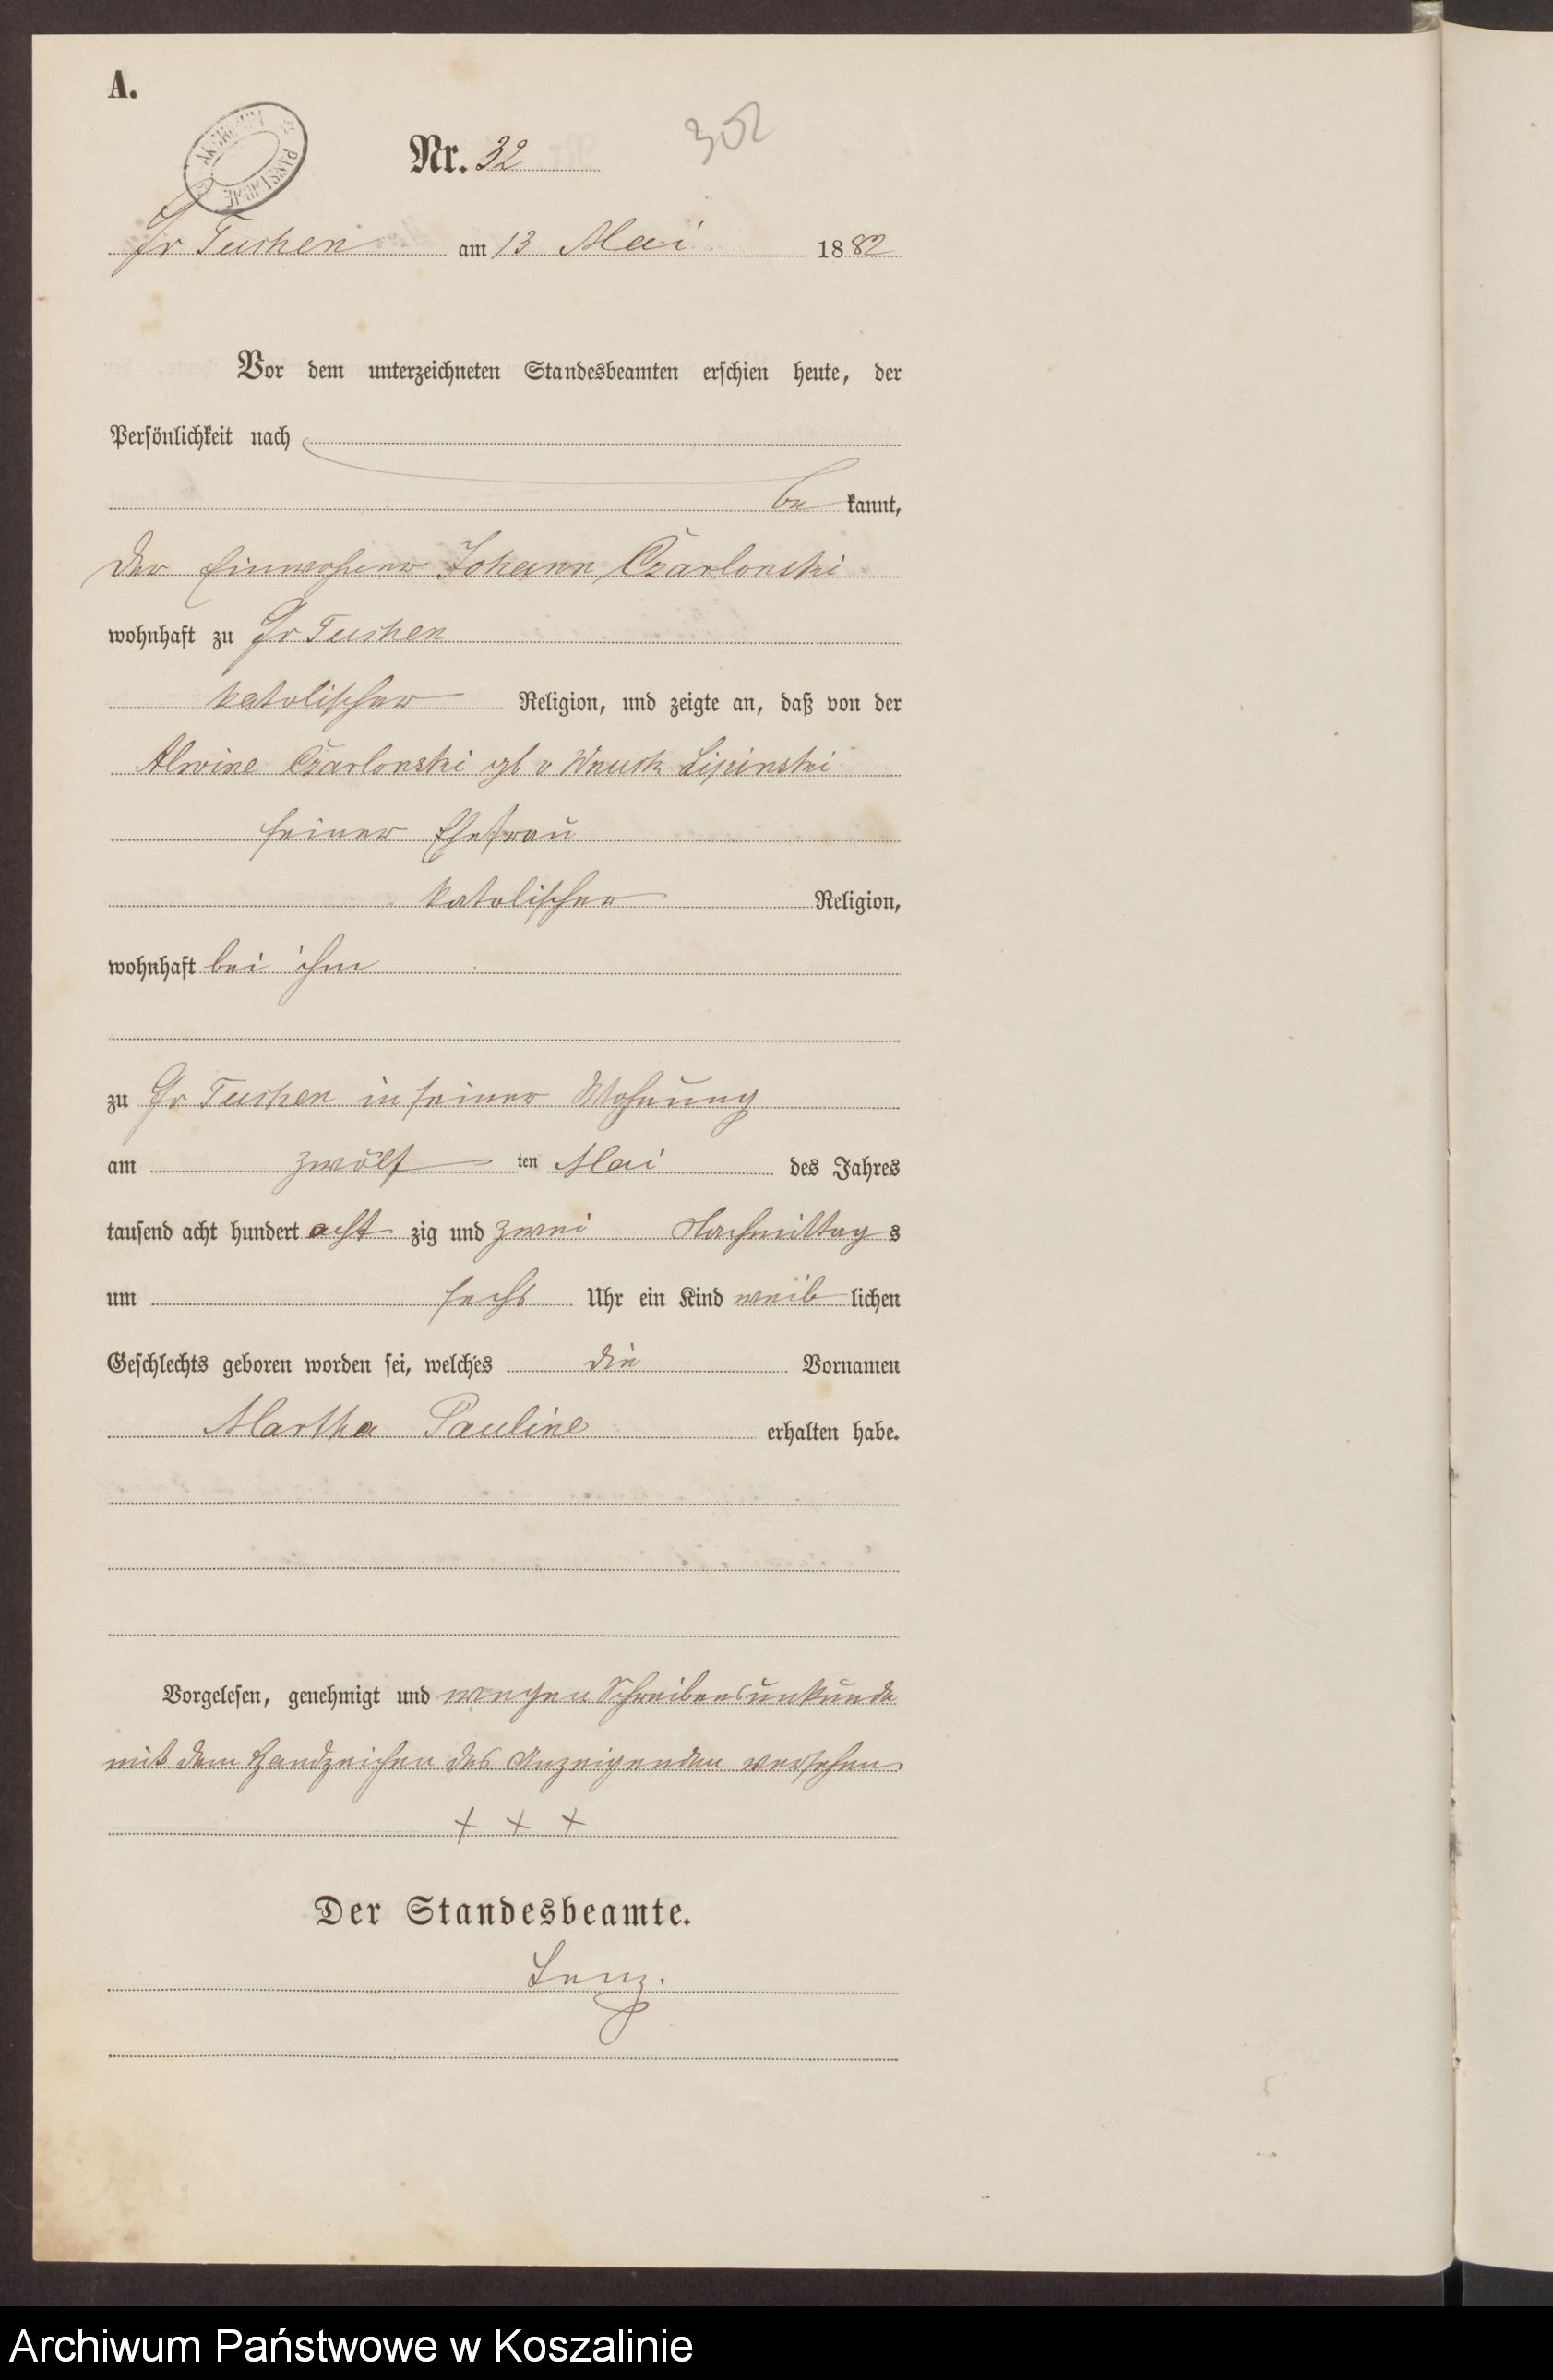 A.
ARCHIWUM PAŃSTWOWE
Nr. 32
302
Gr Tuchen am 13 Mai 1882
Vor dem unterzeichneten Standesbeamten erschien heute, der
Persönlichkeit nach
be kannt,
der Einwohner Johann Czarlonski
wohnhaft zu Gr Tuchen
katolischer Religion, und zeigte an, daß von der
Alwine Czarlonski gb v Wnuck Lipinski
seiner Ehefrau
katolischer Religion,
wohnhaft bei ihm
zu Gr Tuchen in seiner Wohnung
am zwölf ten Mai des Jahres
tausend acht hundert acht zig und zwei Nachmittag s
um sechs Uhr ein Kind weib lichen
Geschlechts geboren worden sei, welches die Vornamen
Martha Pauline erhalten habe.
Vorgelesen, genehmigt und wegen Schreibensunkunde
mit dem Handzeichen des Anzeigenden versehen
+ + +
Der Standesbeamte.
Lenz.
Archiwum Państwowe w Koszalinie